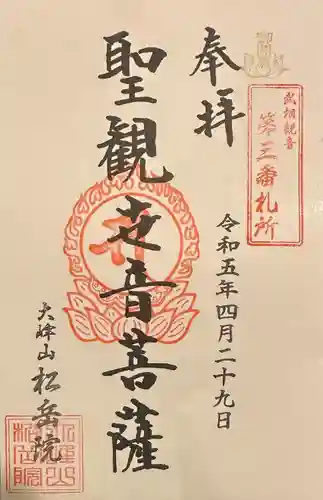 奉拝
武相観音
第三番札所
聖観世音菩薩
令和五年四月二十九日
大峰山
松岳院